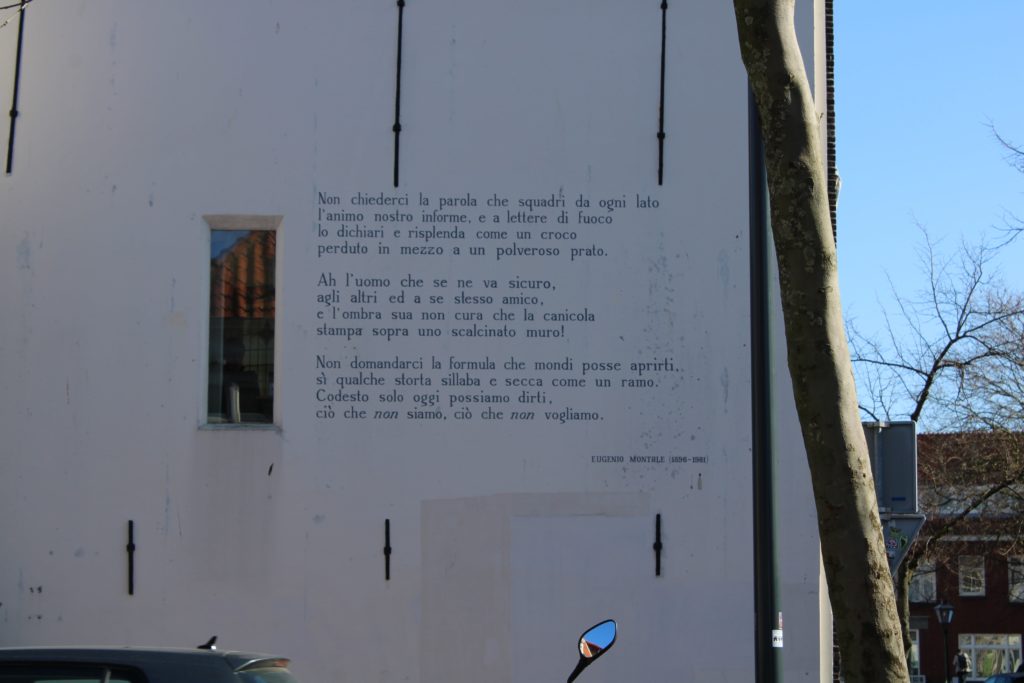 Non chiederci la parola che squadri da ogni lato
l'animo nostro informe, e a lettere di fuoco
lo dichiari e risplenda come un croco
perduto in mezzo a un polveroso prato.
Ah l'uomo che se ne va sicuro,
agli altri ed a se stesso amico,
e l'ombra sua non cura che la canicola
stampa sopra uno scalcinato muro!
Non domandarci la formula che mondi posse aprirti,
sì qualche storta sillaba e secca come un ramo.
Codesto solo oggi possiamo dirti,
ciò che non siamo, ciò che non vogliamo.
EUGENIO MONTALE (1896-1981)